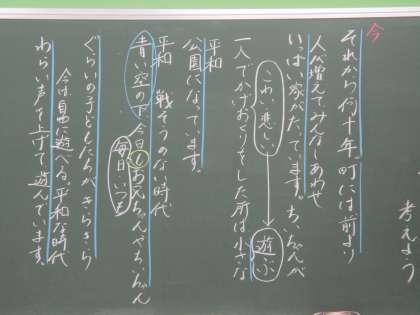 考えよう
今
それから何十年。町には前より
人が増えてみんなしあわせ
いっぱい家がたっています。ちいちゃんが
こわい悲しい
遊ぶ
一人でかげおくりをした所は小さな
平和
公園になっています。
平和 戦そうのない時代
青い空の下今日もお兄ちゃんやちいちゃん
毎日いつも
ぐらいの子どもたちがきらきら
今は自由に遊べる平和な時代
わらい声を上げて遊んでいます。